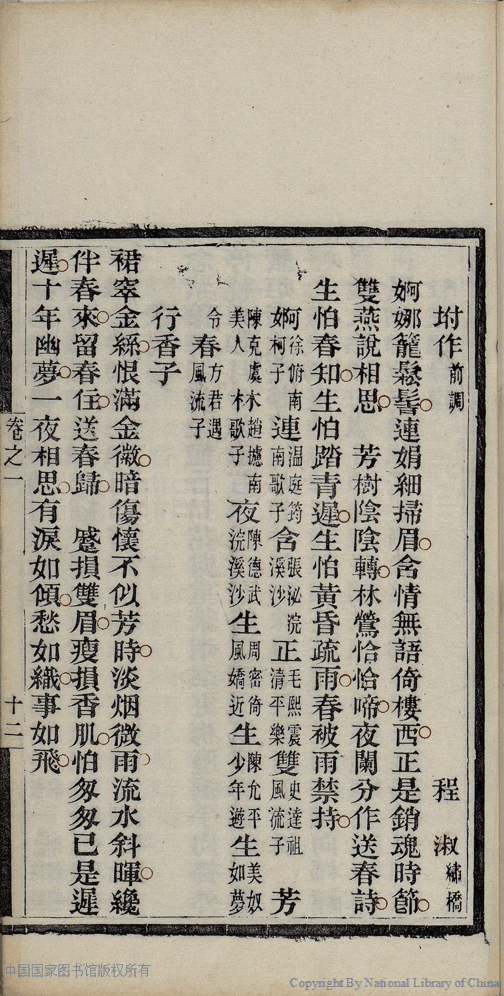 坿作前調 程淑繡橋
婀娜籠鬆髻連娟細掃眉含情無語倚樓西正是銷魂時節
雙燕說相思 芳樹陰陰轉林鶯恰恰啼夜闌分作送春詩
生怕春知生怕踏青遲生怕黃昏疏雨春被雨禁持
婀徐俯南柯子連温庭筠南歌子含張泌浣溪沙正毛熙震清平樂雙史達祖風流子芳
陳克虞美人林趙攄南歌子夜陳德武浣溪沙生周密倚風嬌近生陳允平少年遊生美奴如夢
令春方君遇風流子
行香子
裙窣金絲恨滿金徽暗傷懷不似芳時淡烟微雨流水斜暉纔
伴春來留春住送春歸 蹙損雙眉瘦損香肌怕匆匆已是遲
遲十年幽夢一夜相思有淚如傾愁如織事如飛
卷之一 十二
中国国家图书馆版权所有
Copyright By National Library of China